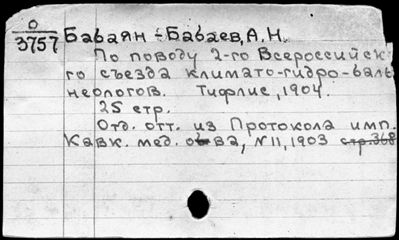 0
3757
Бабаян-Бабаев, А.Н.
По поводу 2-го Всероссийск-
го съезда климато-гидро-баль
неологов. Тифлис, 1904.
25 стр.
Отд. отт. из Протокола имп.
Кавк. мед. о-ва, N 11, 1903 стр. 368